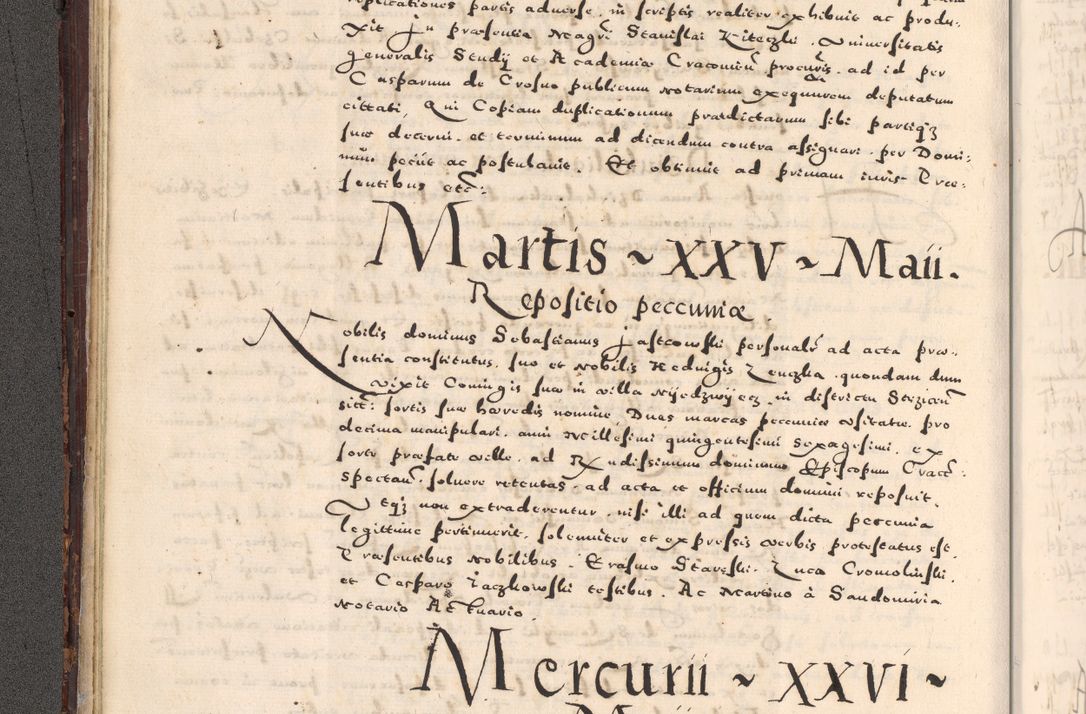 replicationes partis adverse in scriptis realiter exhibuit ac produ:
xit in præsentia Magri Stanislai Kiteczki Universitatis
generalis Studij et Academiæ Cracovien procuris ad id per
Casparum de Crosno publicum notarium exequurem deputatum
cittati, Qui Copiam duplicationum prædictarum sibi partiqz
suæ decerni et terminum ad dicendum contra assignari per Domi:
num petiit ac postulavit. Et obtinuit ad primam iuris Præ:
sentibus etc:
Martis ~ XXV ~ Maii.
Repositio peccuniæ
Nobilis dominus Sebastianus Jastcowski personalr ad acta præ:
sentia constitutus, suo et Nobilis Hedvigis Zenczka quondam dum
vixit Coniugis suæ in villa Nijedzwijecz in districtu Strzicen
sitt: sortis suæ hæredis nomine, Duas marcas peccuniæ usitatæ pro
decima manipulari anni Millesimi quingentesimi sexagesimi, ex
sorte præfate ville, ad Rndissimum dominum Episcopum Cracc:
spectan, solvere retentas, ad acta et officium domini reposuit.
Utqz non extraderentur, nisi illi ad quem dicta peccunia
legittime pertinuerit, solemniter et expressis verbis protestatus est.
Præsentibus Nobilibus Erasmo Stareski, Luca Cromolinski,
et Casparo Raczkowski testibus. Ac Martino à Sandomiria
Notario Actuario.
Mercurii ~ XXVI ~
Maii